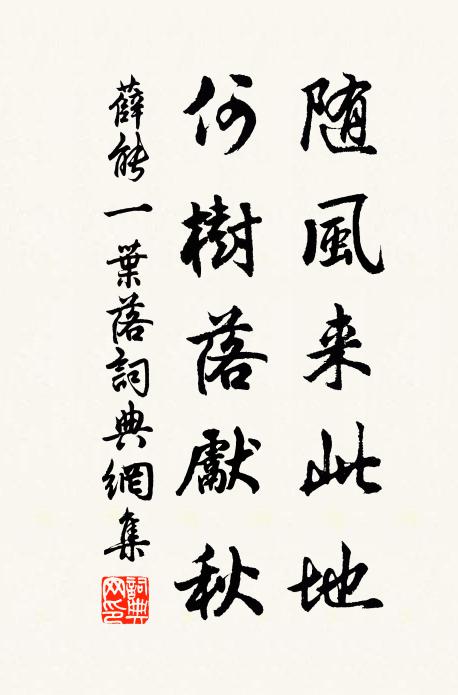 随風来此地
何樹落獻秋
薛能一葉落詞典網集
詞典网印